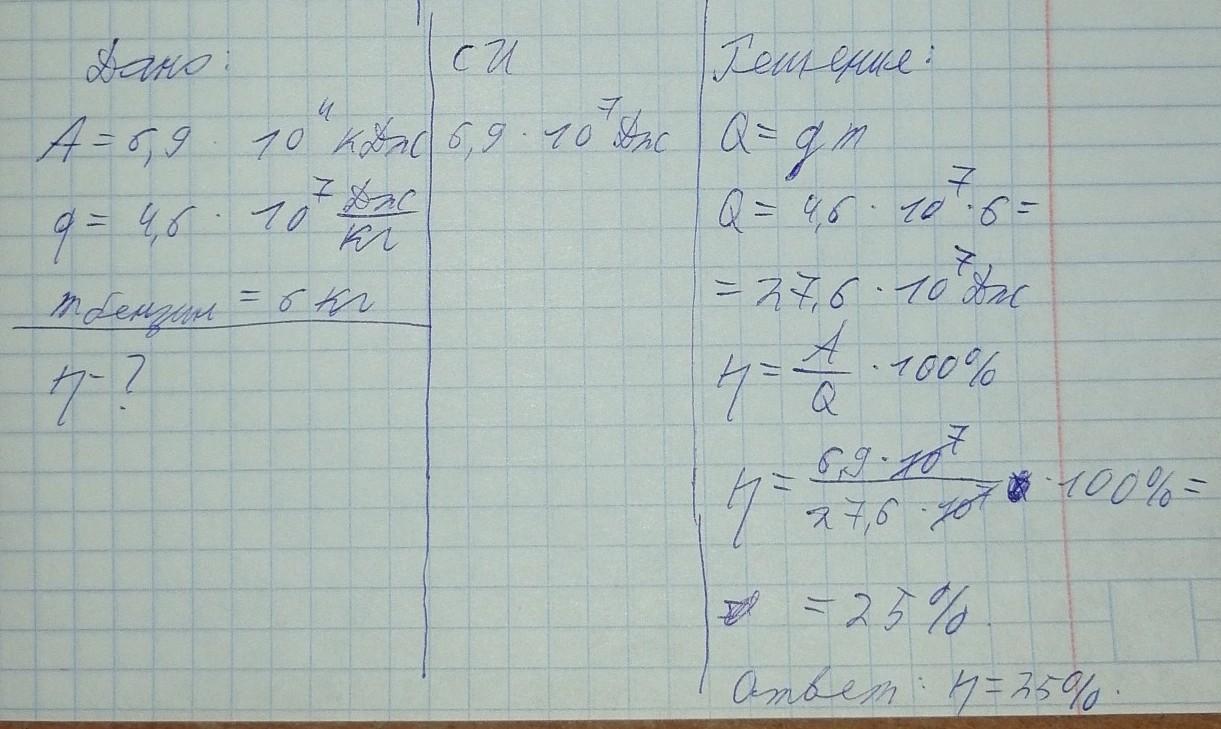 Дано:
A = 6,9 · 10⁴ кДж
q = 4,6 · 10⁷ Дж/кг
m бензин = 6 кг
η - ?
СИ
6,9 · 10⁷ Дж
Решение:
Q = qm
Q = 4,6 · 10⁷ · 6 =
= 27,6 · 10⁷ Дж
η = A/Q · 100%
η = 6,9 · 10⁷/27,6 · 10⁷ · 100% =
= 25%
Ответ: η = 25%.